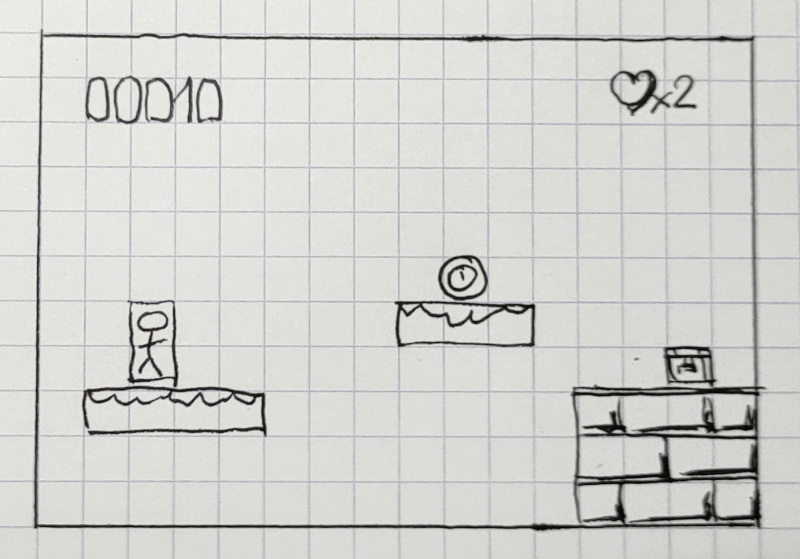 00010
♡x2